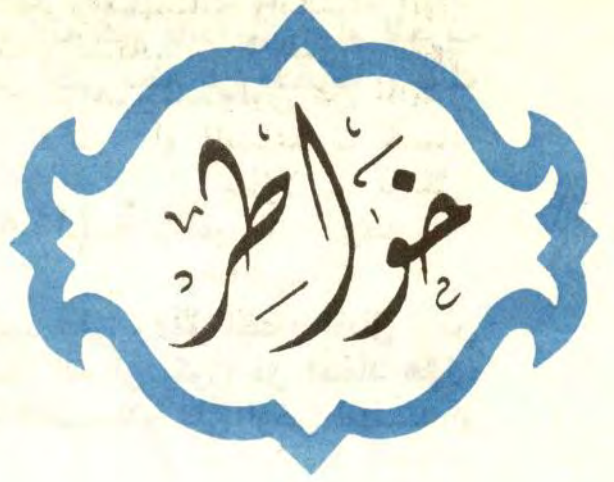 خَوَاطِر